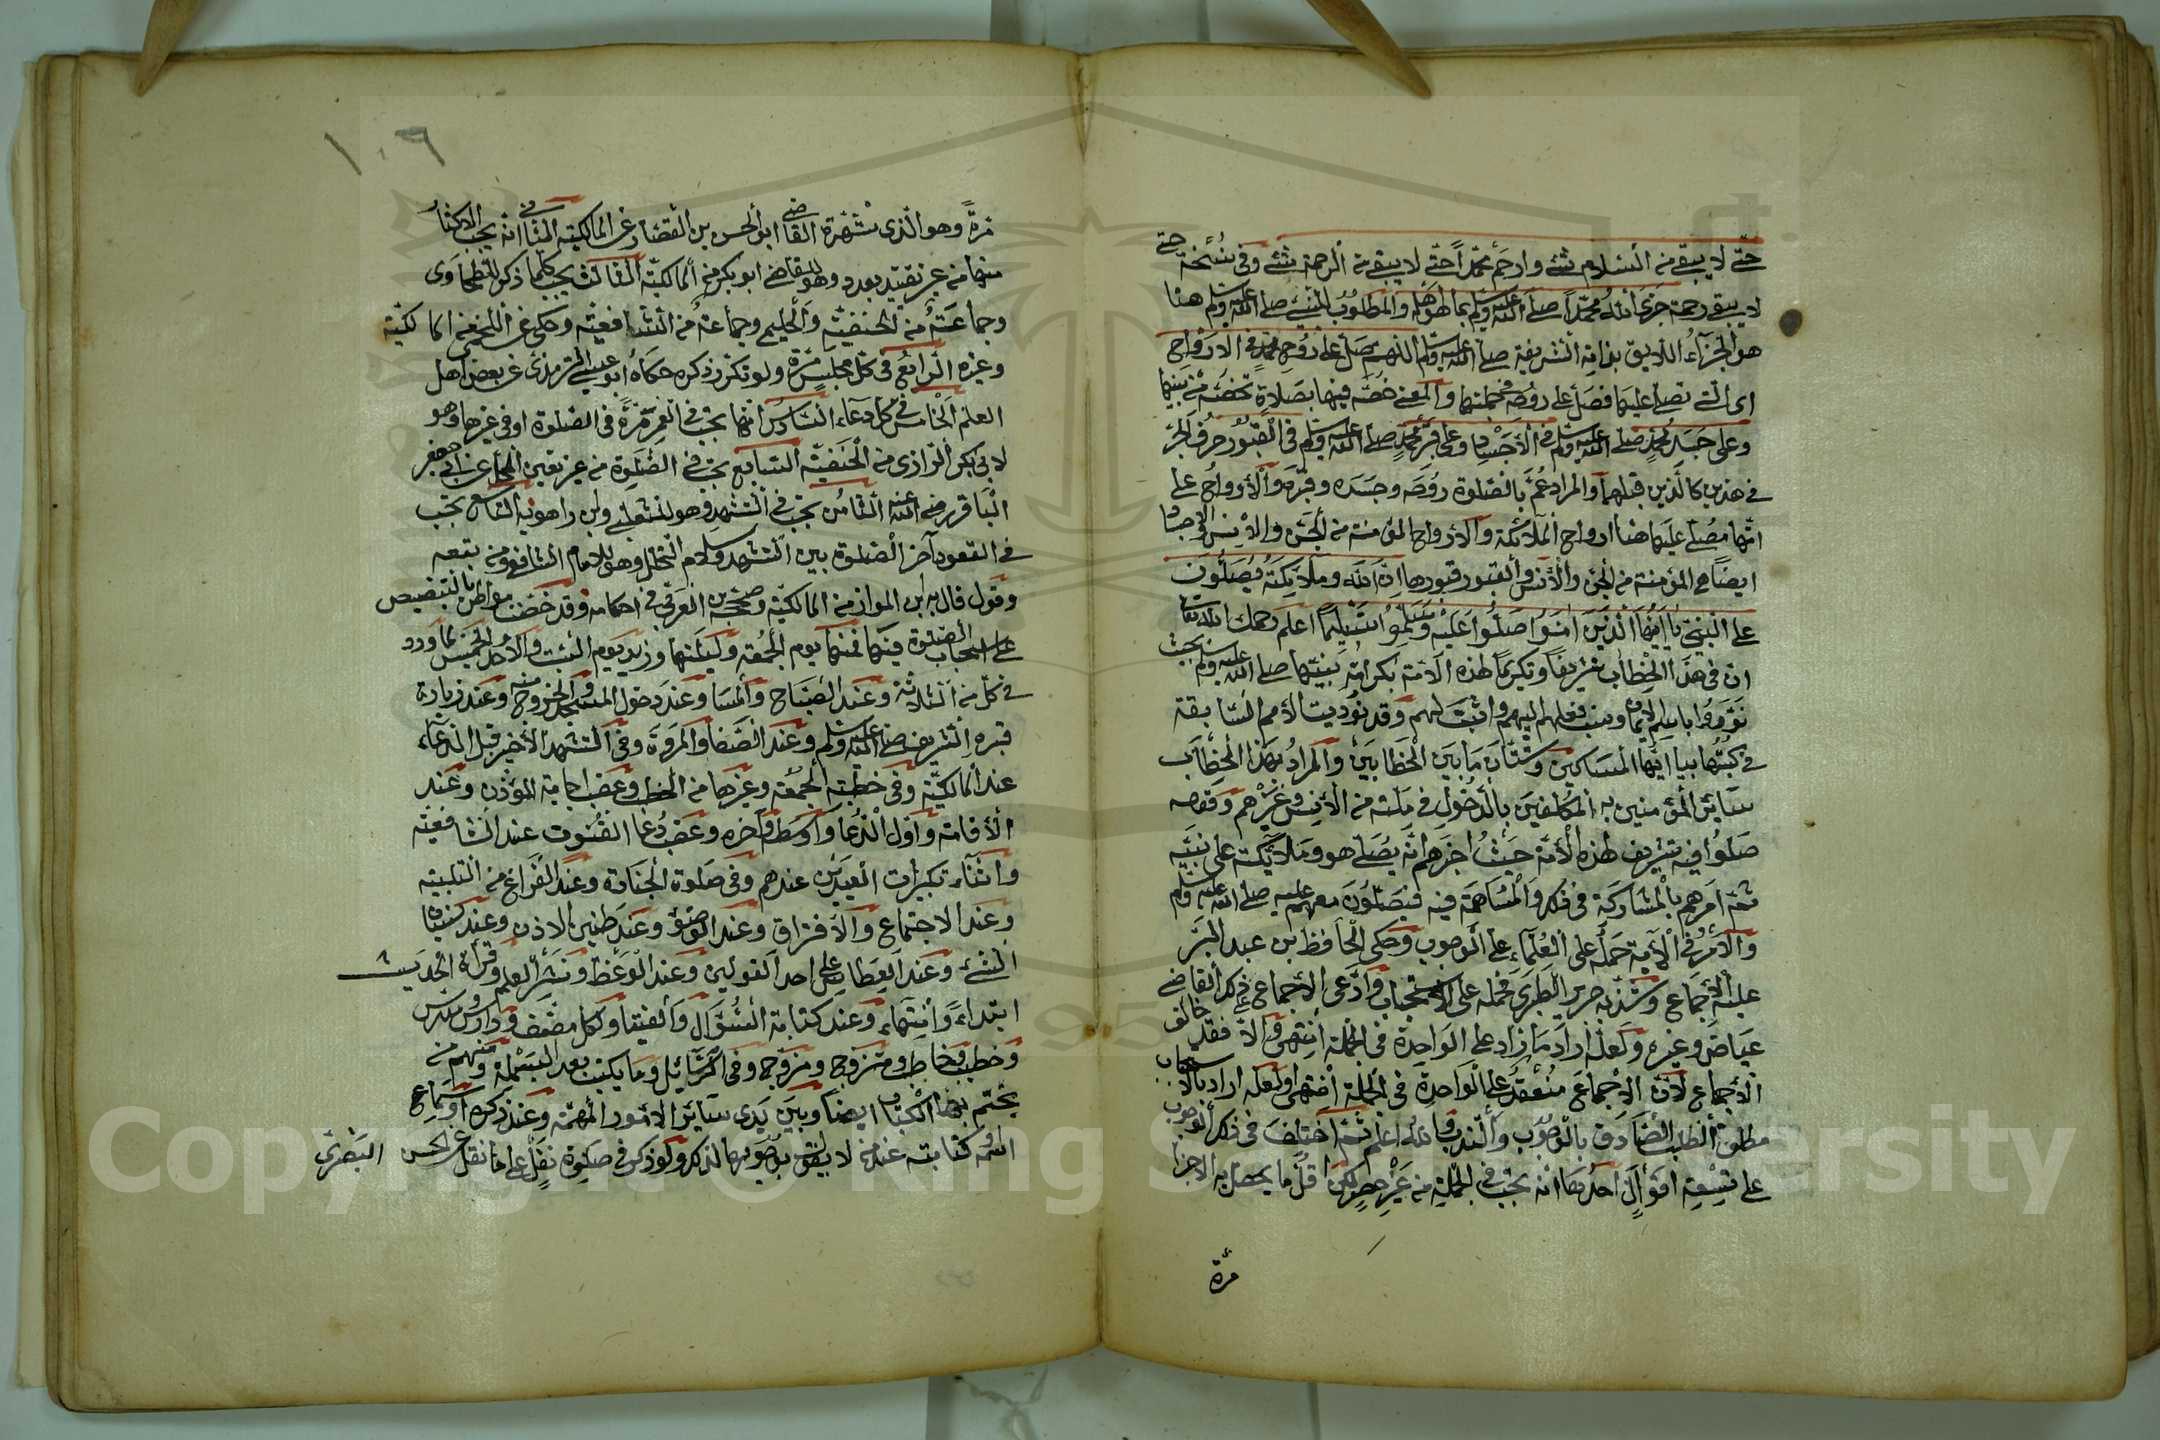 حتى لا يبقى من السلام شئ وارحم محمدا حتى لا يبقى من الرحمة شئ وفى نسخة حتى
لا يبقى رحمة جزى الله محمدا صلى الله عليه وسلم بما هو اهله والمطلوب للنبى صلى الله عليه وسلم هنا
هو الجزاء اللايق بذاته الشريفة صلى الله عليه وسلم اللهم صل على روح محمد فى الارواح
اى التى تصلى عليها فصل على روحه فى جملتها والمعنى خصه فيها بصلاة تخصه من بينها
وعلى جسد محمد صلى الله عليه وسلم فى الاجساد وعلى قبر محمد صلى الله عليه وسلم فى القبور حرف الجر
فى هذين كالذين قبلهما والمراد عم بالصلوة روحه وجسده وقبره والارواح على
انها مصلى عليها هنا ارواح الملائكة والارواح المؤمنة من الجن والانس والاجساد
ايضا هى المؤمنة من الجن والانس والقبور قبورها ان الله وملائكته يصلون
على النبى يا ايها الذين امنوا صلوا عليه وسلموا تسليما اعلم رحمك الله تعالى
ان فى هذا الخطاب تشريفا وتكريما لهذه الامة بكرامة نبيها صلى الله عليه وسلم حيث
نودوا باسم الايمان ونسب فعلهم اليهم واثبت لهم وقد نوديت الامم السابقة
فى كتبها بيا ايها المساكين وشتان ما بين الخطابين والمراد بهذا الخطاب
سائر المؤمنين به المكلفين بالدخول فى ملته من الانس وغيرهم وقوله
صلوا فيه تشريف لهذه الامة حيث اخبرهم انه يصلى هو وملائكته على نبيه
ثم امرهم بالمشاركة فى ذلك والمساهمة فيه فيصلون معهم عليه صلى الله عليه وسلم
والامر فى الآية حمله على العلماء على الوجوب وحكى الحافظ بن عبد البر
عليه الاجماع وشذ بن جرير الطبرى فحمله على الاستحباب وادعى الاجماع على ذلك القاضى
عياض وغيره ولعله اراد ما زاد على الواحدة فى الجملة انتهى والا فقد خالف
الاجماع لان الاجماع منعقد على الواحدة فى الجملة انتهى ولعله اراد بالاستحباب
مطلق الطلب الصادق بالوجوب والندب والله اعلم ثم اختلف فى ذلك الوجوب
على تسعة اقوال احدها انه يجب فى الجملة من غير حصر لكن اقل ما يحصل به الاجزاء
مرة
١٠٦
مرة وهو الذى شهره القاضى ابو الحسن بن القصار عن المالكية الثانى انه يجب الاكثار
منها من غير تقييد بعدد وهو للقاضى ابو بكر من المالكية الثالث يجب كلما ذكر للطحاوى
وجماعة من الحنفية والحليمى وجماعة من الشافعية وحكى عن اللخمى من المالكية
وغيره الرابع فى كل مجلس مرة ولو تكرر ذكره حكاه ابو عيسى الترمذى عن بعض اهل
العلم الخامس فى كل دعاء السادس انها تجب فى العمر مرة فى الصلوة او فى غيرها وهو
لابى بكر الرازى من الحنفية السابع تجب فى الصلوة من غير تعيين المحل عن ابى جعفر
الباقر رضى الله عنه الثامن تجب فى التشهد وهو للشعبى وابن راهويه التاسع تجب
فى القعود آخر الصلوة بين التشهد وسلام التحلل وهو للامام الشافعى ومن تبعه
وقول قال به ابن المواز من المالكية وصححه بن العربى فى احكامه وقد خصت مواطن بالتنصيص
على استحباب الصلوة فيها فمنها يوم الجمعة وليلتها وزيد يوم السبت والاحد والخميس لما ورد
فى كل من الثلاثة وعند الصباح والمسا وعند دخول المسجد والخروج منه وعند زيارة
قبره الشريف صلى الله عليه وسلم وعند الصفا والمروة وفى التشهد الاخير قبل الدعاء
عند المالكية وفى خطبة الجمعة وغيرها من الخطب وعقب اجابة المؤذن وعند
الاقامة واول الدعا واوسطه وآخره وعقب دعا القنوت عند الشافعية
واثناء تكبيرات العيدين عندهم وفى صلوة الجنازة وعند الفراغ من التلبية
وعند الاجتماع والافتراق وعند الوضوء وعند طنين الاذن وعند نسيان
الشئ وعند العطاس على احد القولين وعند الوعظ ونشر العلم وقراة الحديث
ابتداء وانتهاء وعند كتابة السؤال والفتيا ولكل مصنف ودارس ومدرس
وخطيب وخاطب ومتزوج ومزوج وفى الرسائل وما يكتب بعد البسملة ومنهم من
يختم بها الكتاب ايضا وبين يدى سائر الامور المهمة وعند ذكره او سماع
اسمه او كتابته عند من لا يقول بوجوبها لذلك ولو ذكر فى صلوة نفل على ما نقل عن الحسن البصرى